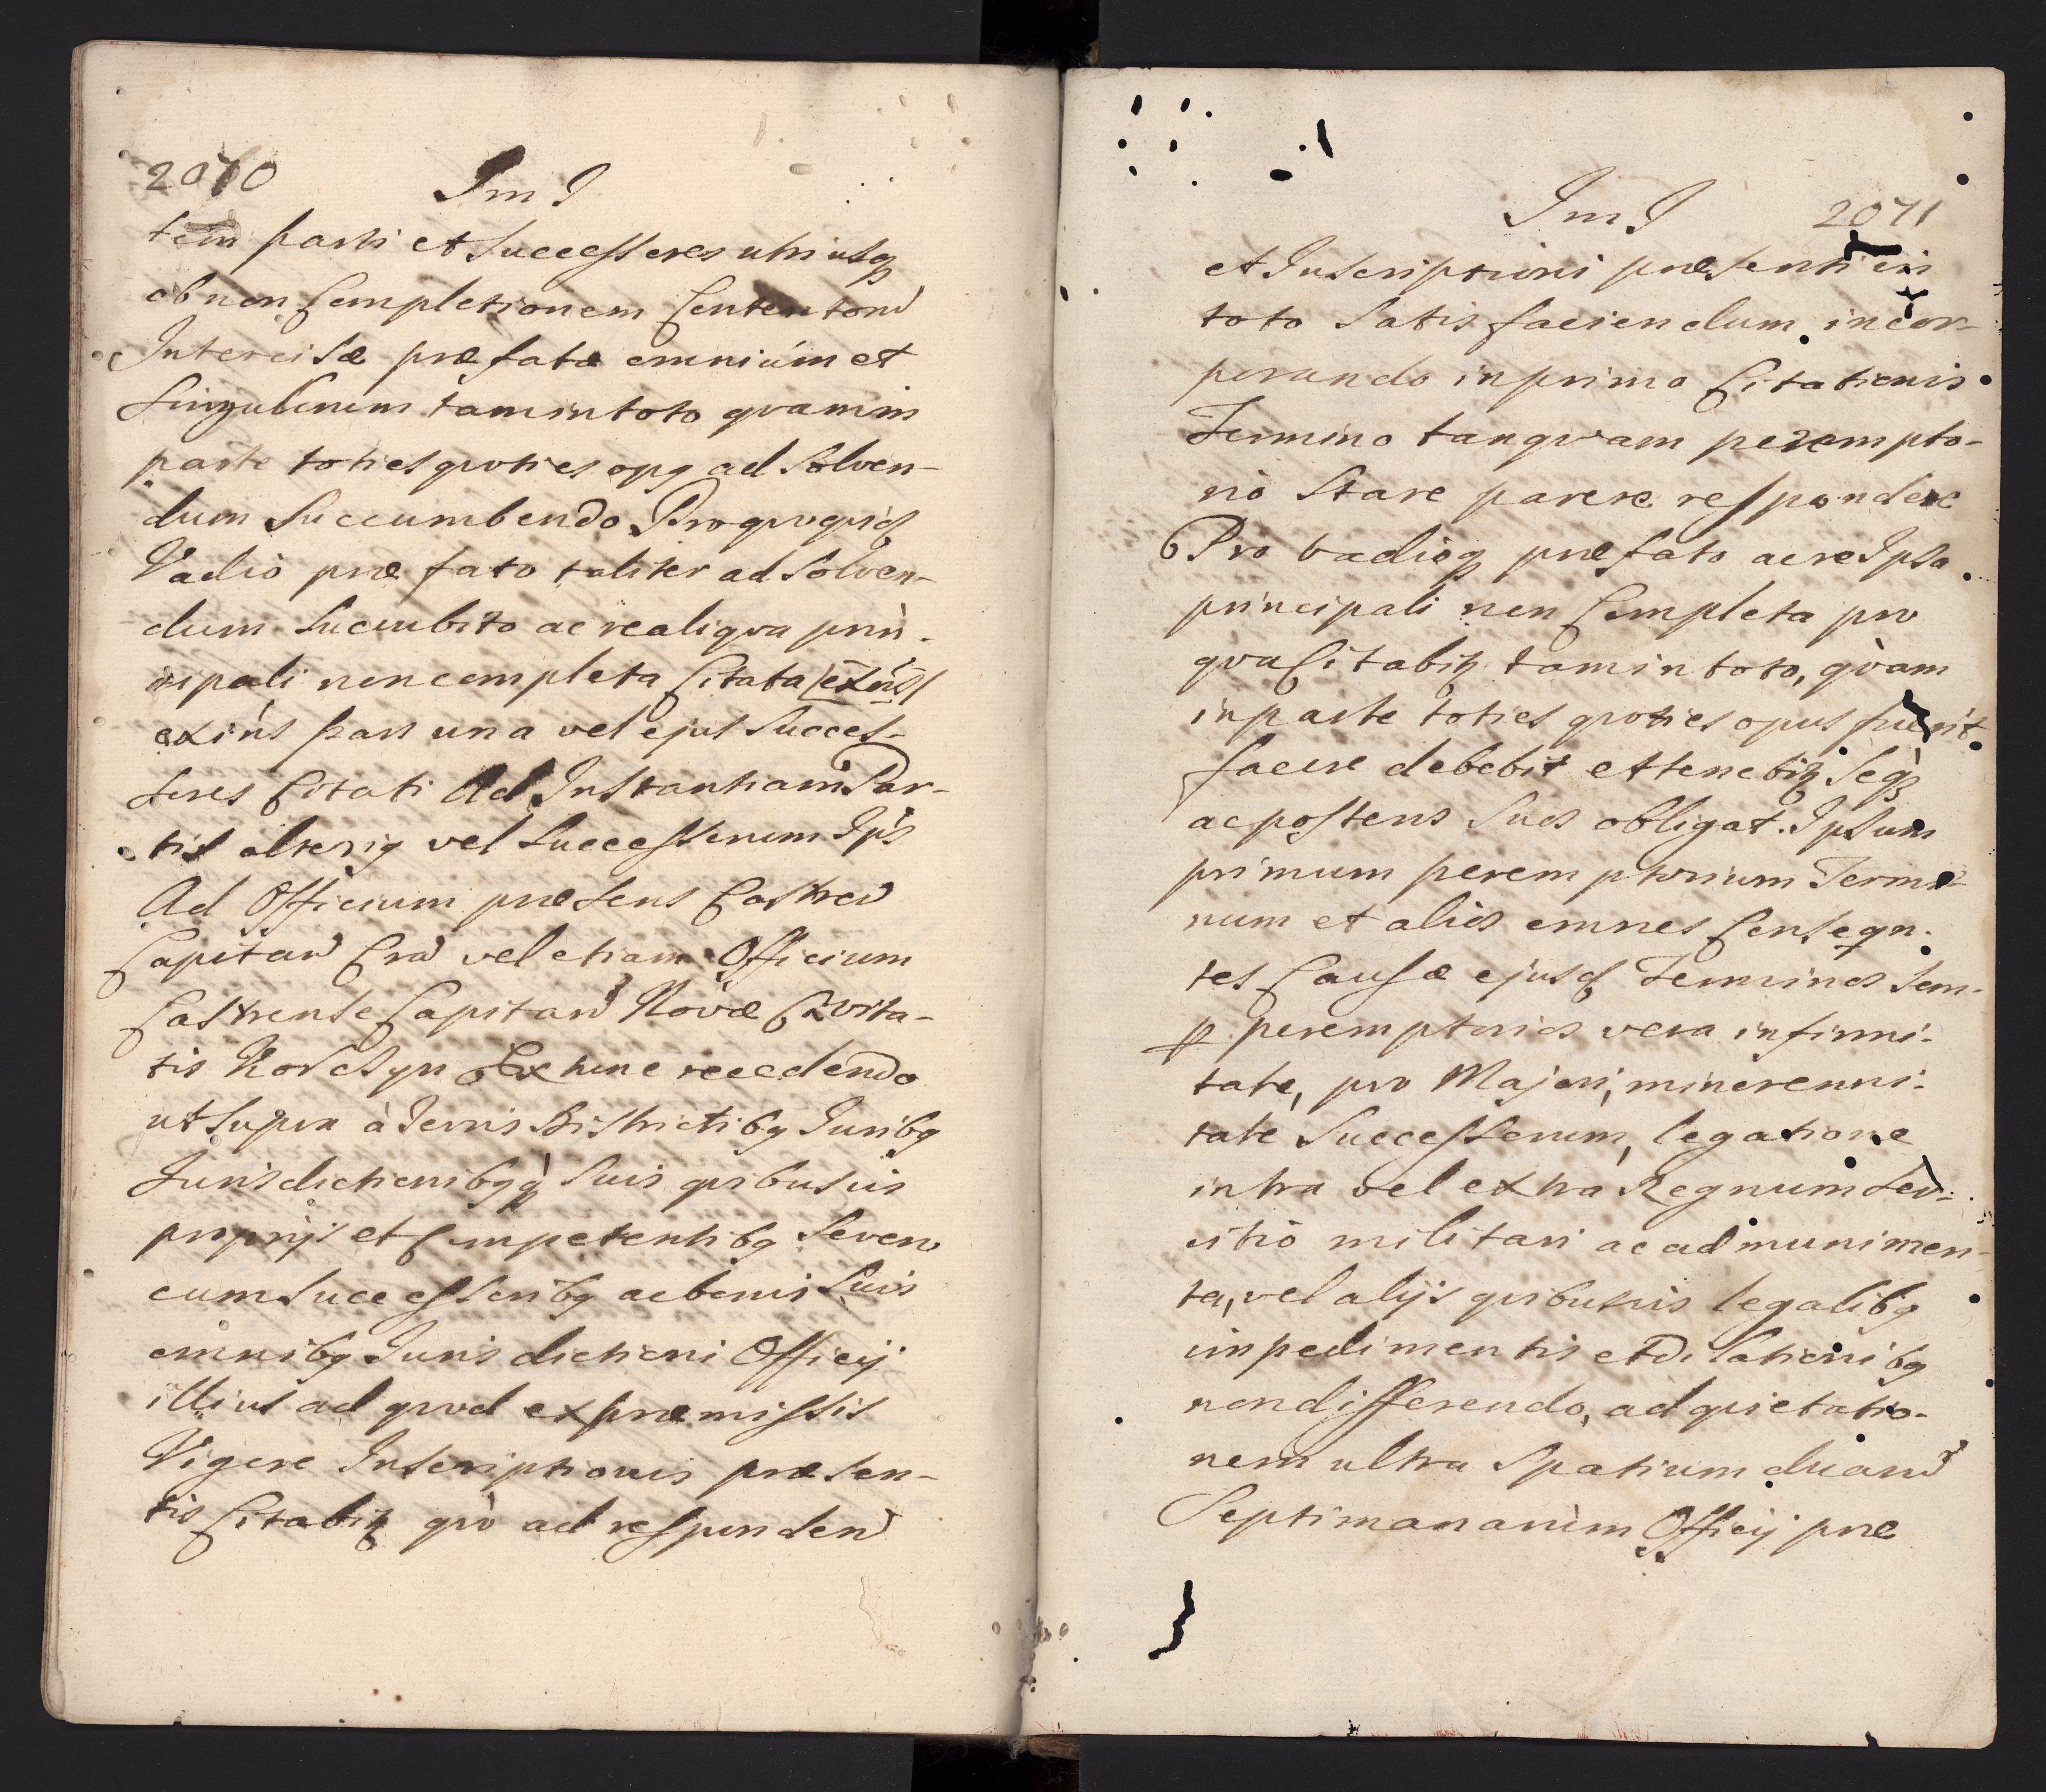 2070
Im J
tem parti et Successores utriusq
ob non Completionem Contentorũ
Intercisæ præfatæ omniúm et
Singulorum tam in toto qvam in
parte toties qvoties opq ad Solven-
dum Succumbendo Pro qvoqvidq
Vadiò præfato taliter ad Solven-
dum Succubito ac re aliqva prin-
cipali non completa Citata /exińs/
exińs pars una vel ejus Succes-
sores Citati Ad Instantiam Par-
tis alteriq vel Successorum Ip̀s
Ad Officium præsens Castreũ
Capitaũ Craũ vel etiam Officium
Castrense Capitaũ Novæ Civita-
tis Korczyn Ex tunc recedendo
ut Supra à Terris Districtibq Juribq
Jurisdictionibqq̀ Suis qvibusvis
proprijs et Competentibq Seren
cum Successoribq ac bonis Suis
omnibq Jurisdictioni Officij
illius ad qvod ex præmissis
Vigore Inscriptionis præsen-
tis Citabitꝫ qvò ad respondenũ
Im J
2071
et Inscriptioni præsenti in
toto Satisfaciendum incor-
porando in primo Citationis
Termino tanqvam perempto-
riò Stare parere respondere
Pro vadioq præfato ac re Ipsa
principali non Completa pro
qva Citabitꝫ tam in toto, qvàm
in parte toties qvoties opus fuerit
facere debebit et tenebitꝫ Seq̀ꝫ
ac postens Suos obligat. Ipsum
primum peremptorium Termi-
num et alios omnes Conseqn-
tes Causæ ejusdꝫ Terminos Sem-
ꝑ peremptorios vera infirmi-
tate, pro Majori, minorenni-
tate Successorum, legatione
intra vel extra Regnum Ser-
vitiò militari ac ad munimen-
ta, vel alijs qvibusvis legalibq
impedimentis et Dilationibq
non differendo, ad qvietatio-
nem ultra Spatium duarũ
Septimanarùm Officij præ